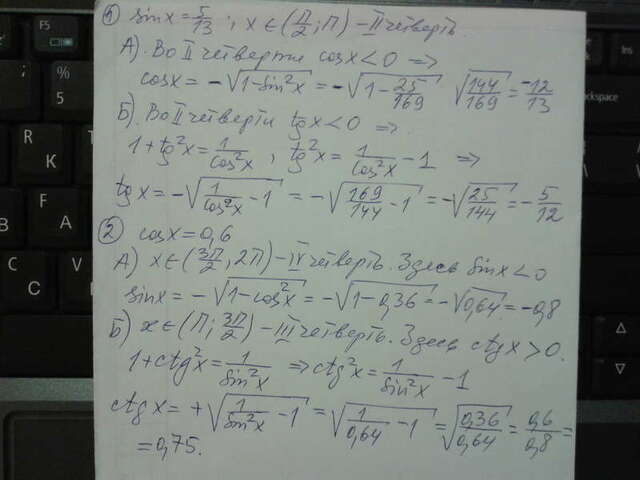 ① sinx = 5/13 ; x ∈ (П/2 ; П) – II четверть.
А). Во II четверти cosx < 0 ⇒
cosx = -√(1-sin²x) = -√(1-25/169) √(144/169) = -12/13
Б). Во II четверти tgx < 0 ⇒
1+tg²x = 1/cos²x , tg²x = 1/cos²x - 1 ⇒
tgx = -√(1/cos²x - 1) = -√(169/144 - 1) = -√(25/144) = -5/12
② cosx = 0,6
А) x ∈ (3П/2 , 2П) – IV четверть. Здесь sinx < 0
sinx = -√(1-cos²x) = -√(1-0,36) = -√0,64 = -0,8
Б) x ∈ (П ; 3П/2) – III четверть. Здесь ctgx > 0.
1+ctg²x = 1/sin²x ⇒ ctg²x = 1/sin²x - 1
ctgx = +√(1/sin²x - 1) = √(1/0,64 - 1) = √(0,36/0,64) = 0,6/0,8 =
= 0,75.
F5
Backspace